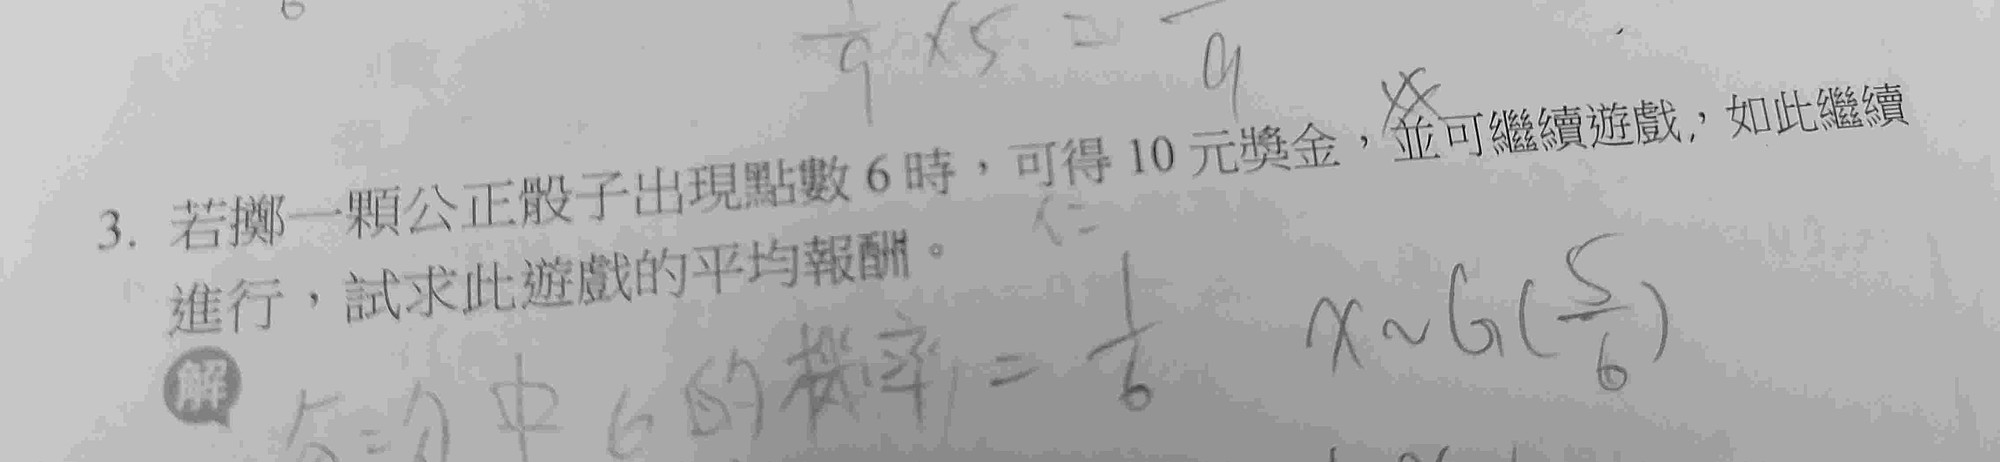 1/9 x 5 = /9
3. 若擲一顆公正骰子出現點數 6 時，可得 10 元獎金，並可繼續遊戲，如此繼續
進行，試求此遊戲的平均報酬。
解
中 6 的機率 = 1/6 X~G(5/6)